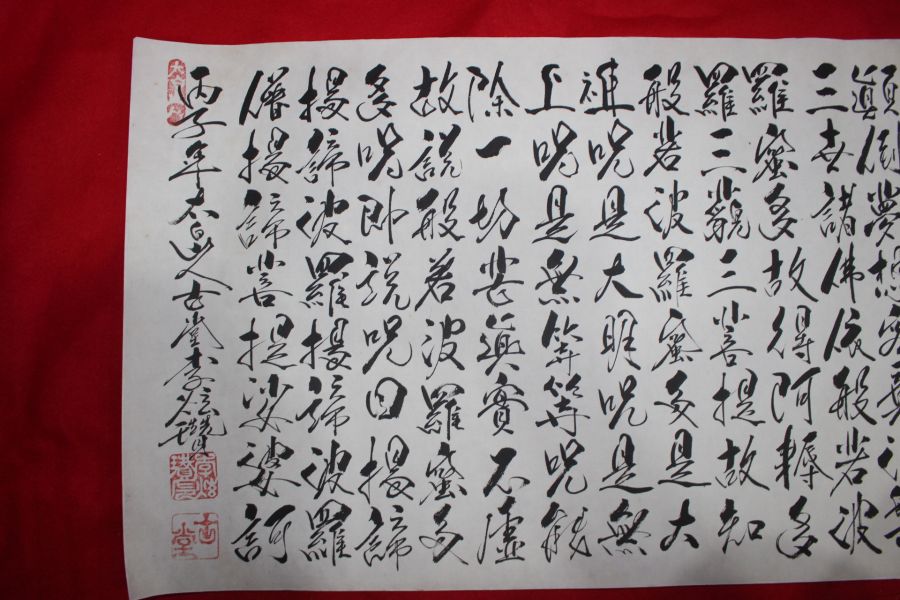 顚倒夢想究竟涅槃
三世諸佛依般若波
羅蜜多故得阿耨多
羅三藐三菩提故知
般若波羅蜜多是大
神呪是大明呪是無
上呪是無等等呪能
除一切苦眞實不虛
故說般若波羅蜜多
多呪即說呪曰揭諦
揭諦波羅揭諦波羅
僧揭諦菩提娑婆訶
丙子年太白山人古堂李
古堂